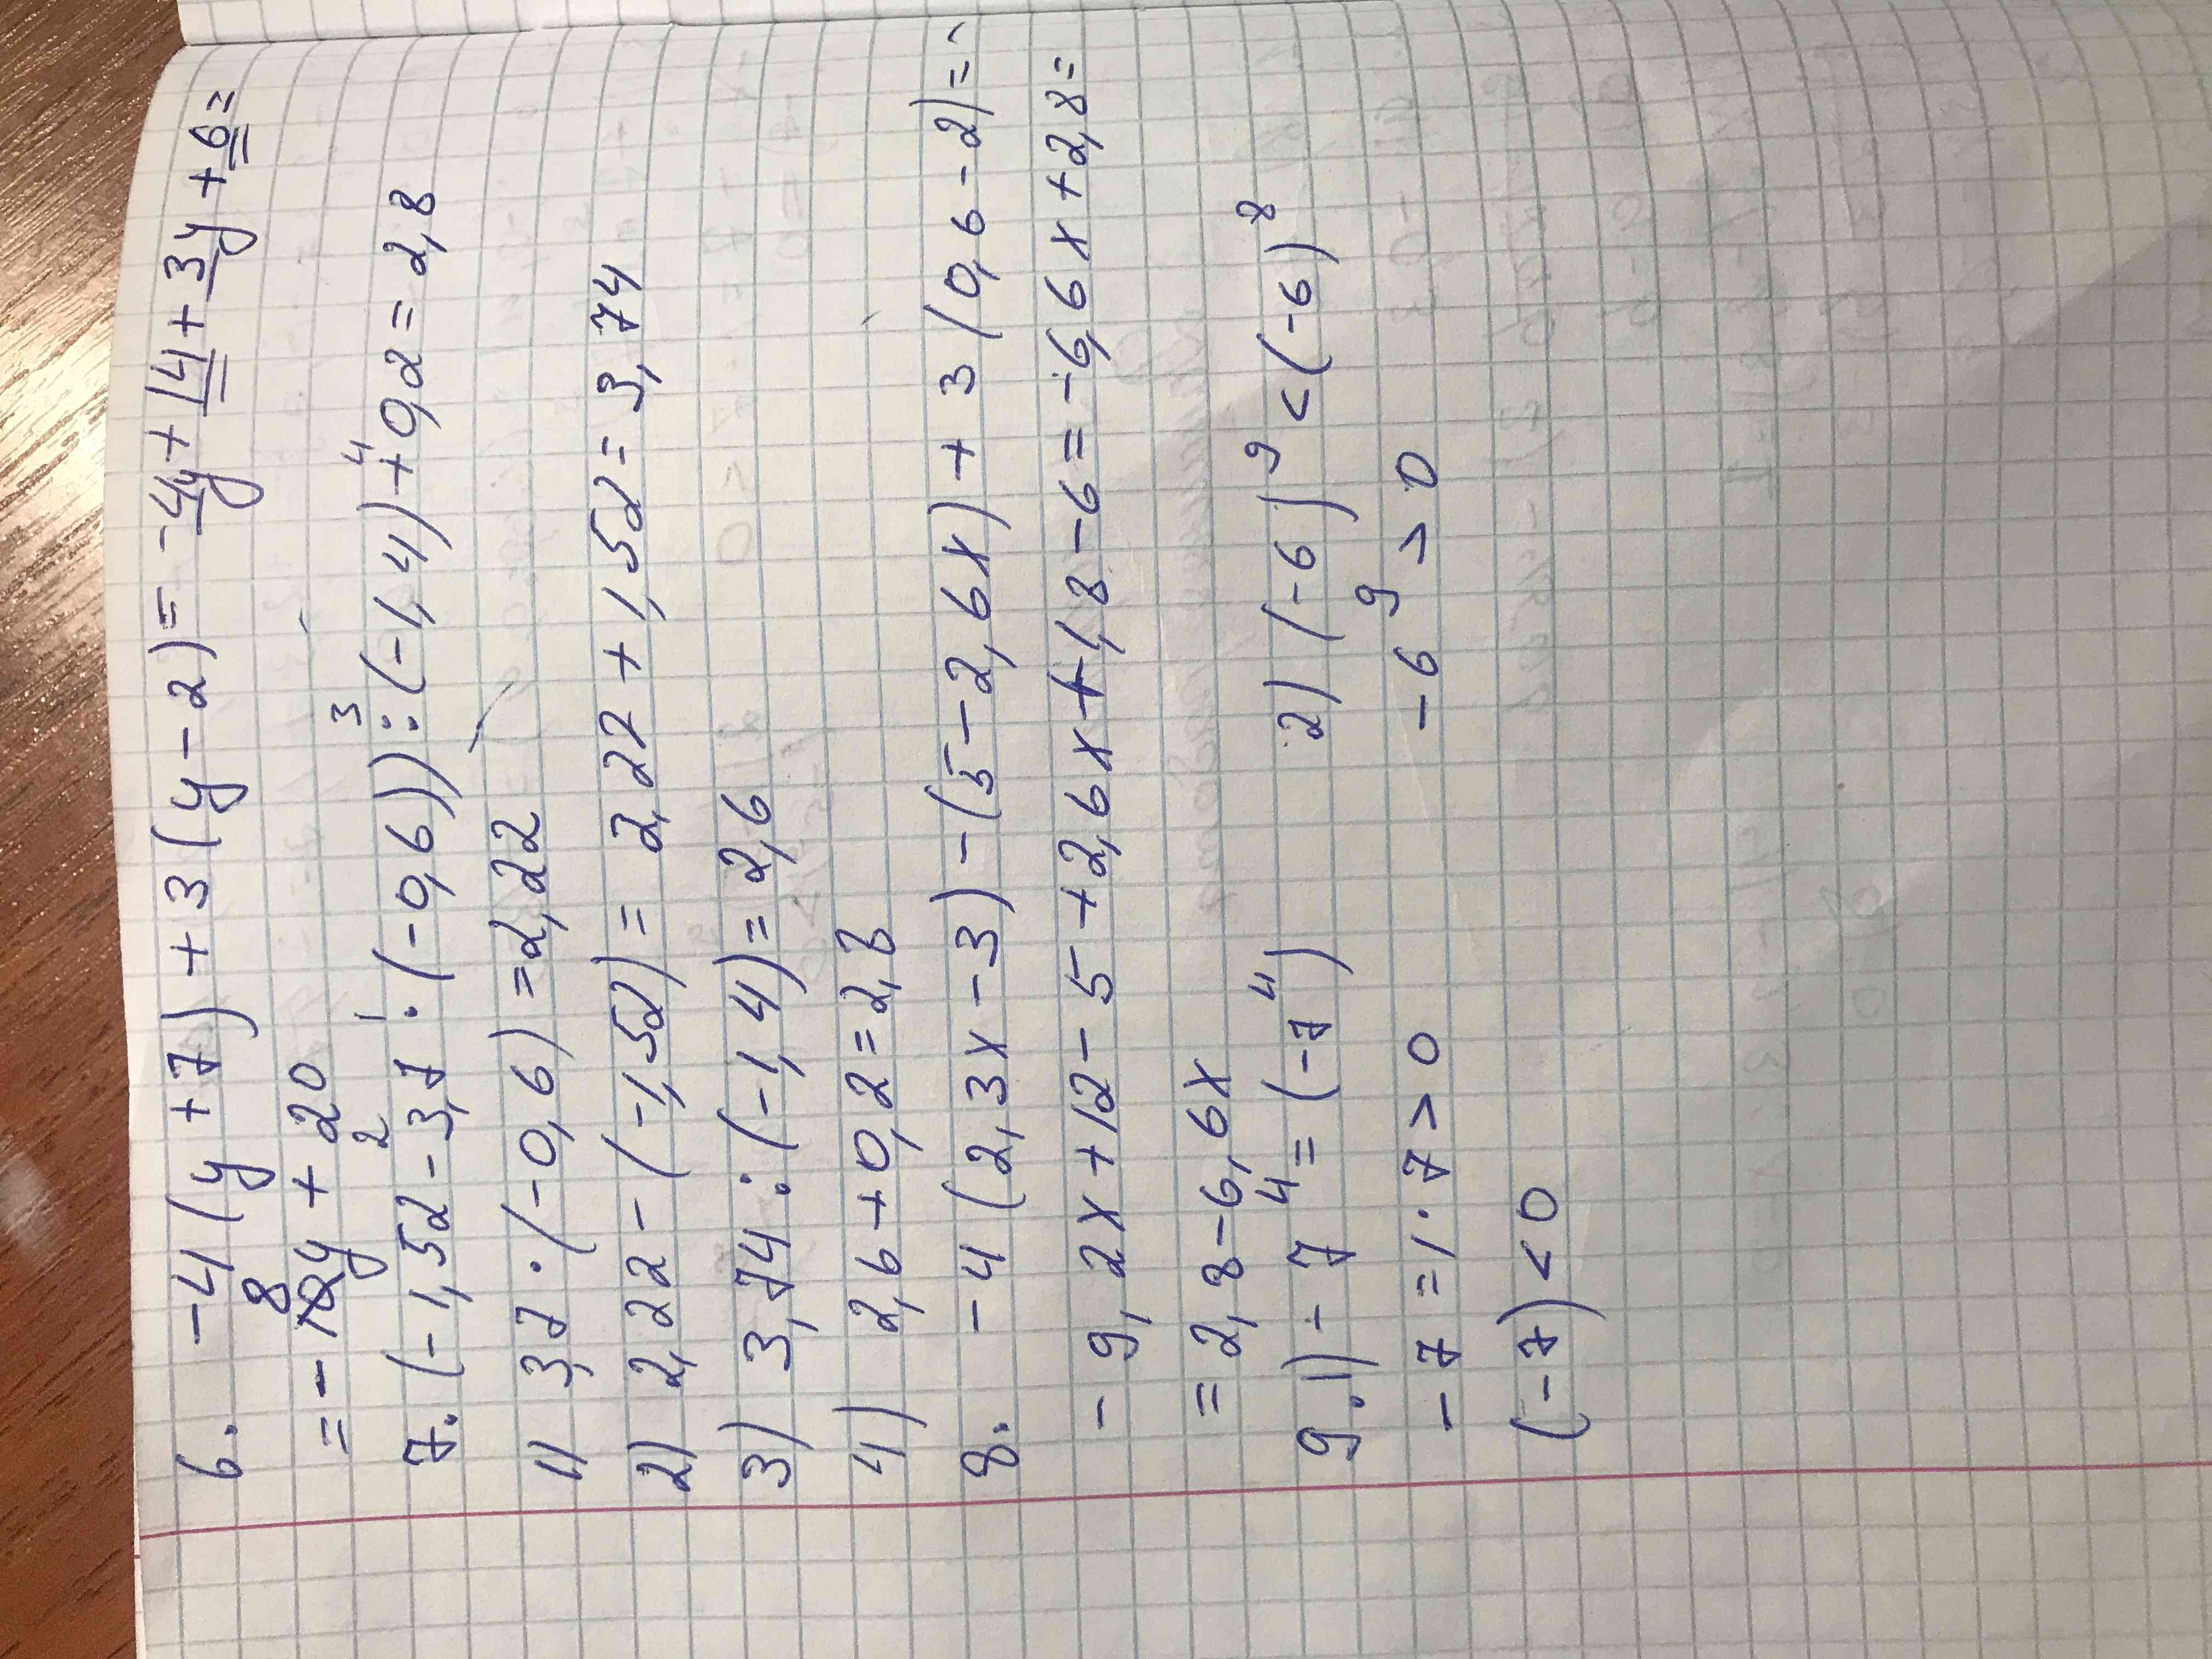 6. -4(y+7)+3(y-2)=-4y+14+3y+6=
=-8y+20
7. (-1,52-3,7·(-0,6)):(-1,4)+0,2=2,8
1) 3,7·(-0,6)=2,222
2) 2,22-(-1,52)=2,22+1,52=3,74
3) 3,74:(-1,4)=2,6
4) 2,6+0,2=2,8
8. -4(2,3x-3)-(5-2,6x)+3(0,6-2)=
-9,2x+12-5+2,6x+1,8-6=-6,6x+2,8=
=2,8-6,6x
9.1) -7⁴=(-7⁴) 2) (-6)⁹<(-6)⁸
-7=1·7>0 -6⁹>0
(-7)<0